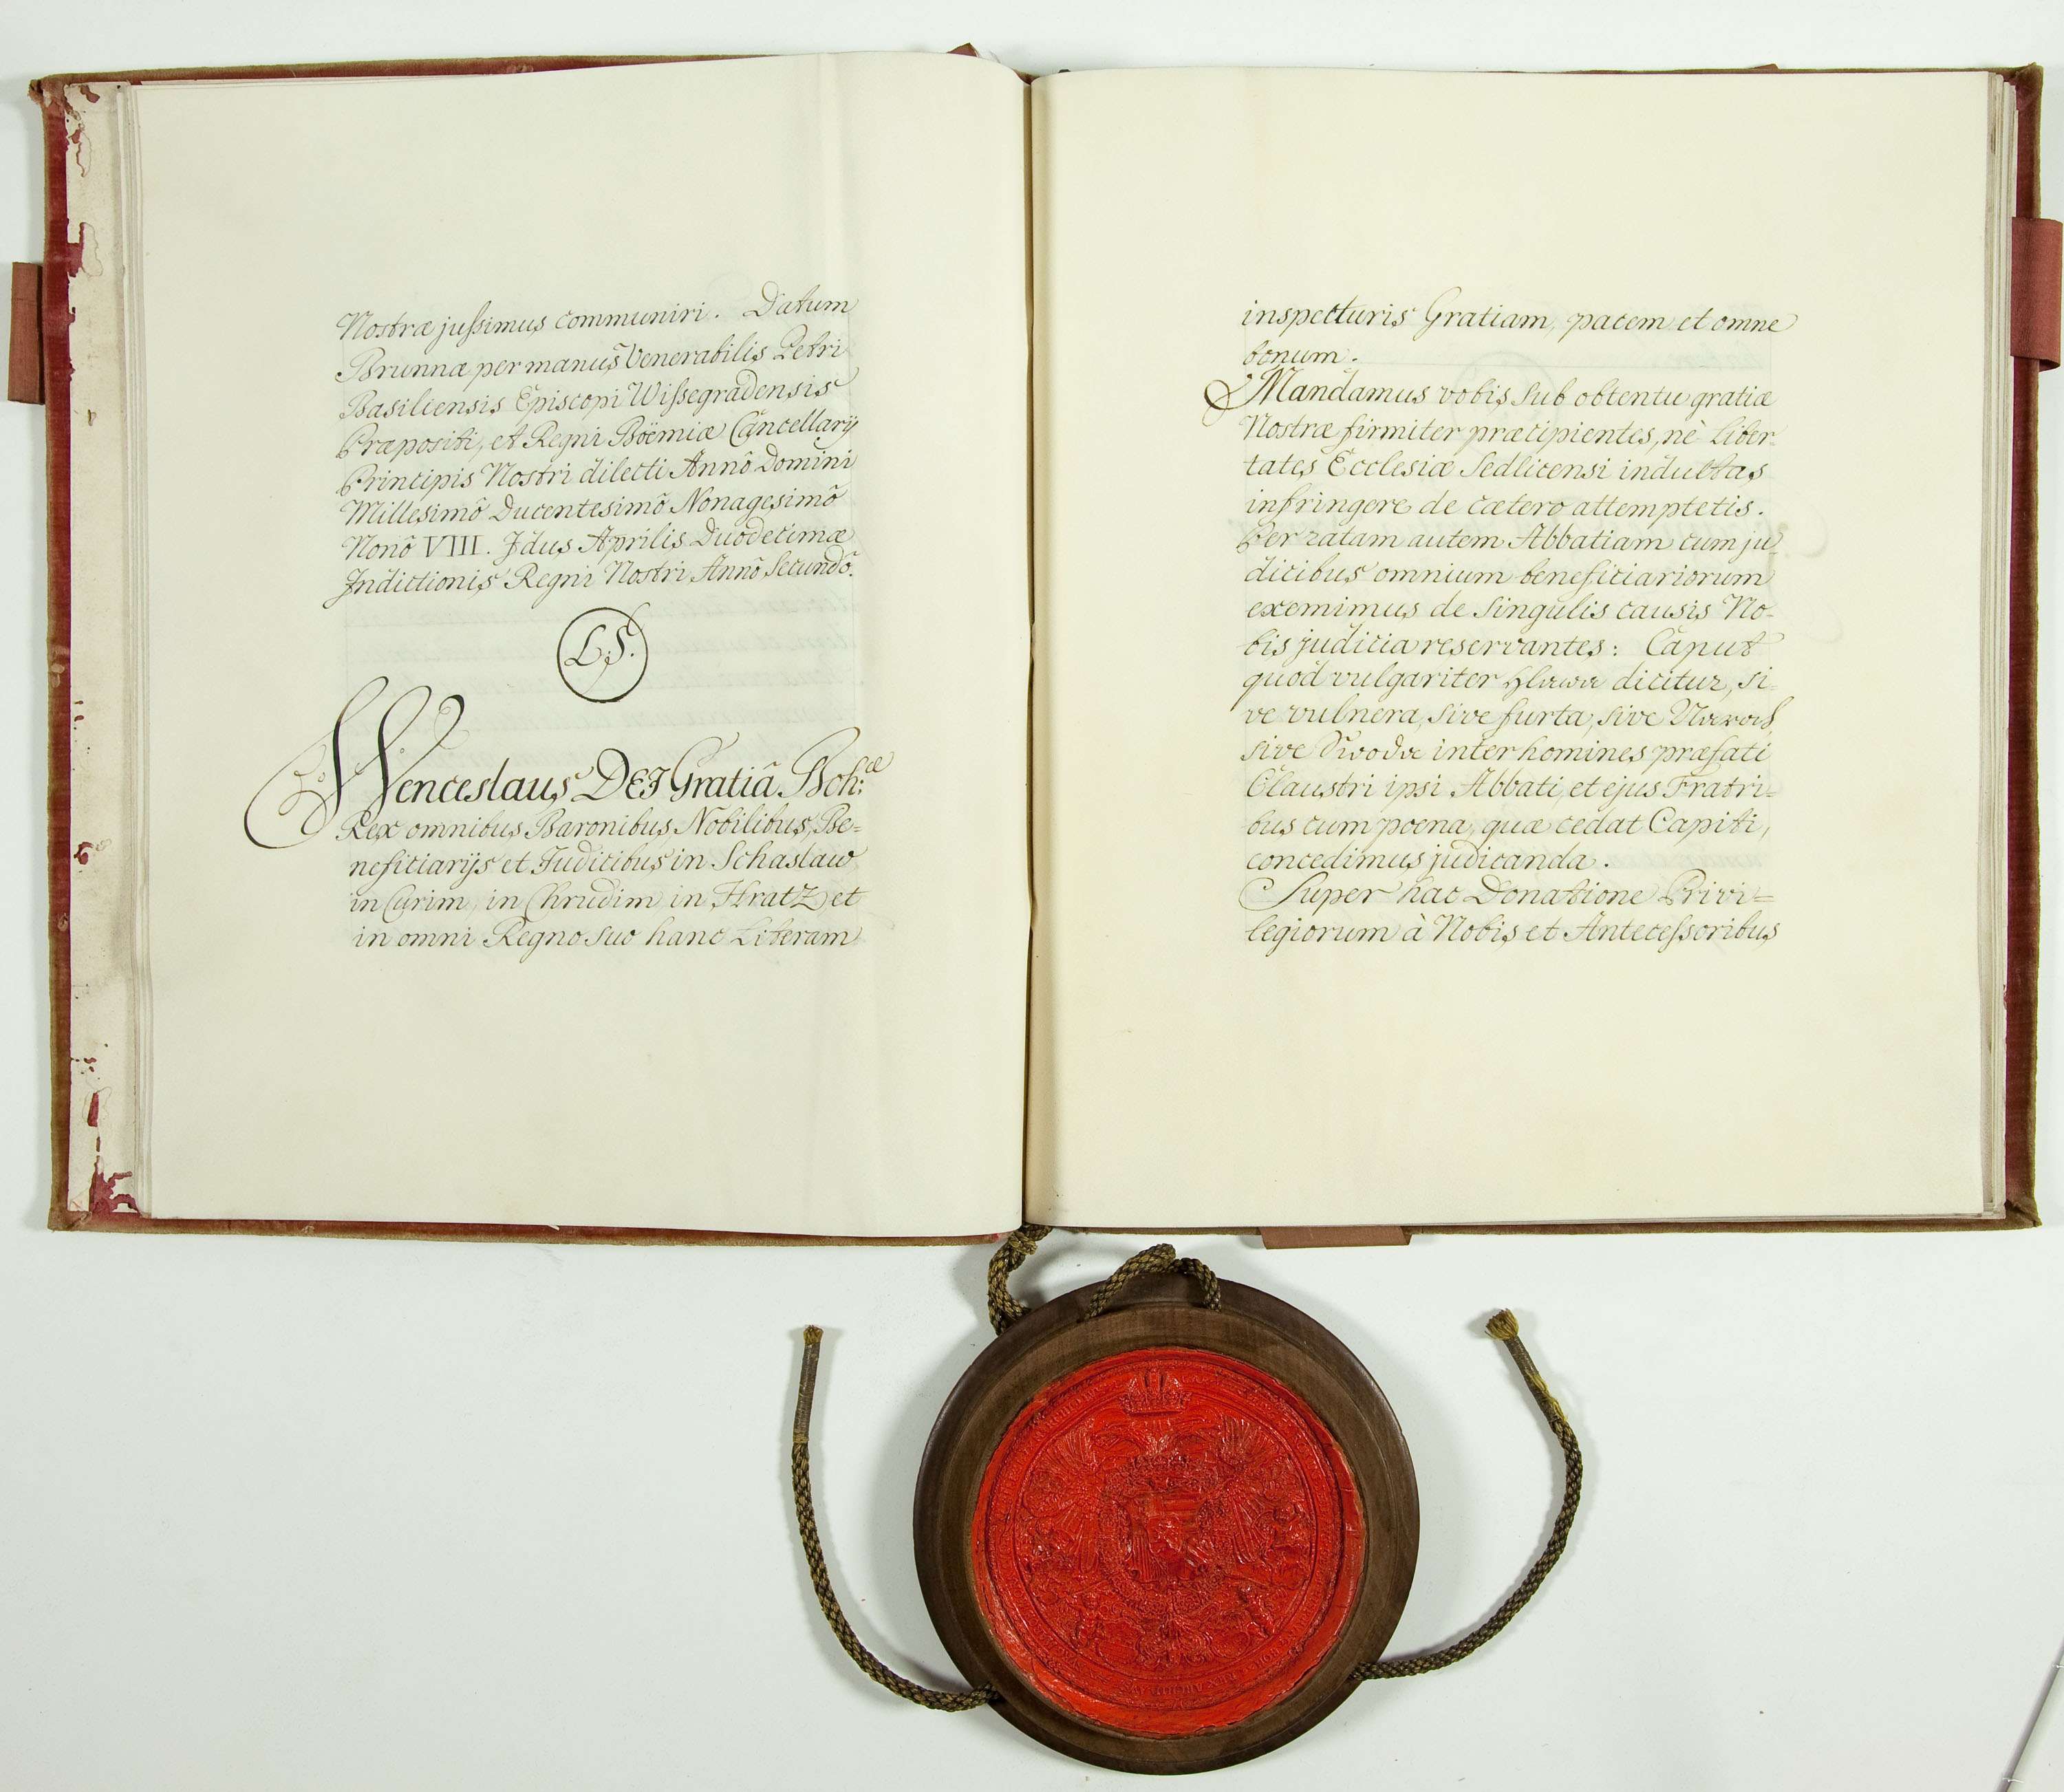 Nostræ jussimus communiri. Datum
Brunnæ per manus Venerabilis Petri
Basiliensis Episcopi Wissegradensis
Præpositi, et Regni Böemiæ Cancellarij
Principis Nostri dilecti Annô Domini
Millesimô Ducentesimô Nonagesimô
Nonô VIII. Idus Aprilis Duodecimæ
Indictionis Regni Nostri Annô Secundô.
L.S.
Wenceslaus DEI Gratiâ Boh:æ
Rex omnibus Baronibus, Nobilibus, Be=
neficiarijs et Judicibus in Schaslaw
in Curim, in Chrudim in Hratz et
in omni Regno suo hanc Literam
inspecturis Gratiam, pacem et omne
bonum.
Mandamus vobis sub obtentu gratiæ
Nostræ firmiter præcipientes, nè liber-
tates Ecclesiæ Sedlicensi indultas
infringere de cætero attemptetis.
Per ratam autem Abbatiam cum ju-
dicibus omnium beneficiariorum
exemimus de singulis causis No-
bis judicia reservantes: Caput
quod vulgariter Hlawa dicitur, si-
ve vulnera, sive furta, sive Narok,
sive Swoda inter homines præfati
Claustri ipsi Abbati, et ejus Fratri=
bus cum poena, quæ cedat Capiti,
concedimus judicanda.
Super hac Donatione Privi=
legiorum à Nobis et Antecessoribus